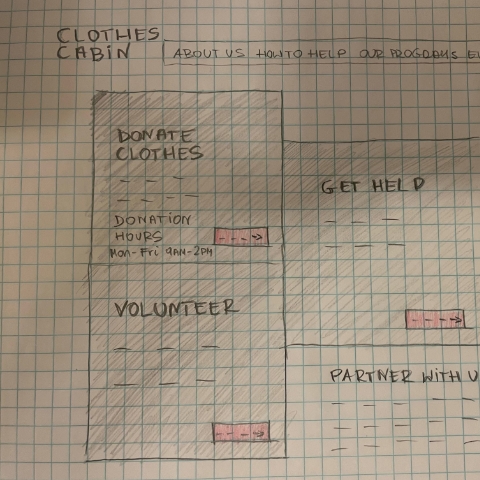 CLOTHES
CABIN
ABOUT US HOW TO HELP OUR PROGRAMS
DONATE
CLOTHES
DONATION
HOURS
Mon-Fri 9AM-2PM
GET HELP
VOLUNTEER
PARTNER WITH U